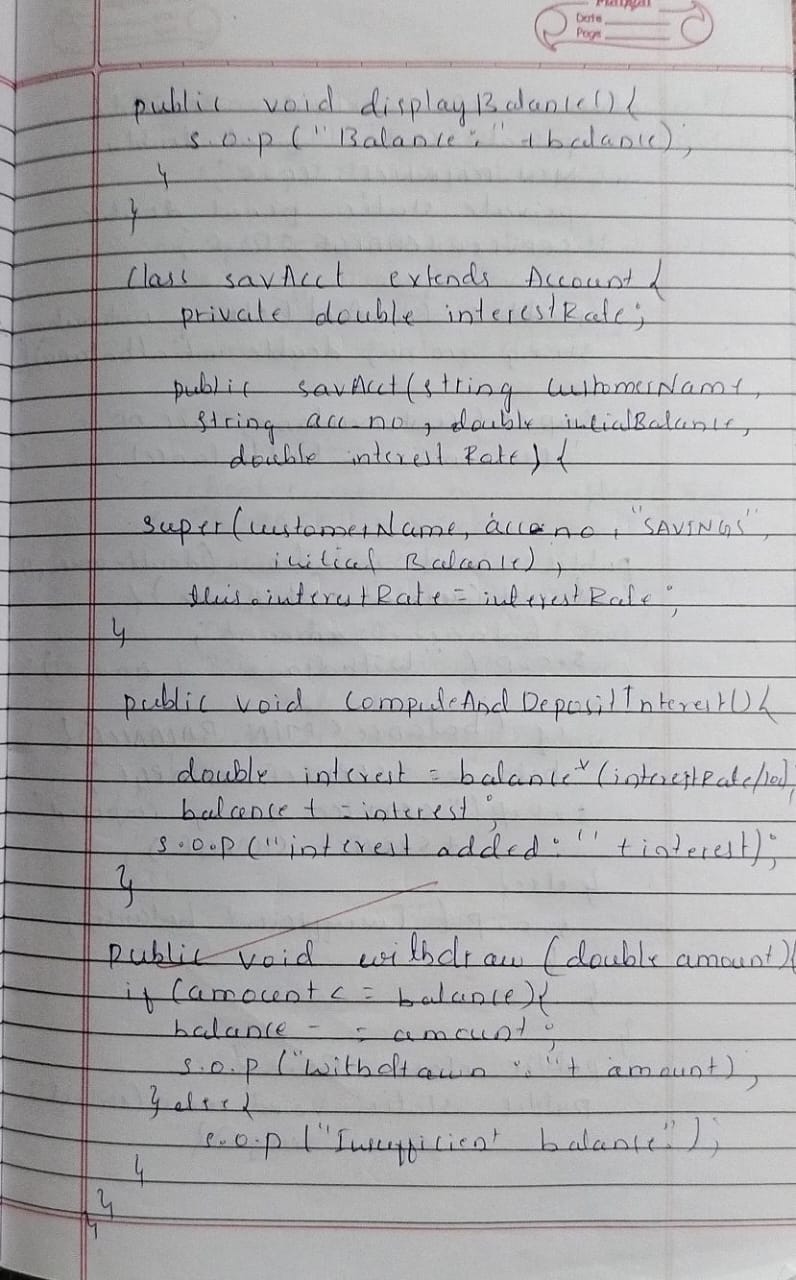 Date
Page
public void displayBalance() {
s.o.p ("Balance: " + balance);
}
}
class savAcct extends Account {
private double interestRate;
public savAcct (string customerName,
string acc-no, double intialBalance,
double interest Rate) {
super (customerName, acc-no, "SAVINGS",
initial Balance);
this.interestRate = interestRate;
}
public void computeAndDepositInterest() {
double interest = balance * (interestRate/100);
balance + = interest;
s.o.p ("interest added: " + interest);
}
public void withdraw (double amount) {
if (amount < = balance) {
balance - = amount;
s.o.p ("withdrawn : " + amount);
} else {
s.o.p ("Insufficient balance.");
}
}
}